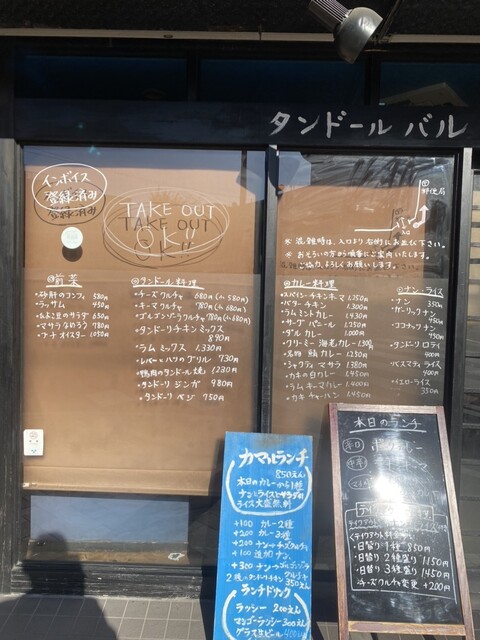 タンドール バル
インボイス
登録済み
TAKE OUT
OK!!
郵便局
※ 混雑時は、入口より右側にお並び下さい。
※ おそろいの方から順番にご案内いたします。
ご協力、よろしくお願いします。
前菜
・砂肝のコンフィ 580円
・ラッサム 450円
・ひよこ豆のサラダ 650円
・マサラなめろう 780円
・アチャオイスター 1,050円
タンドール料理
・チーズクルチャ 680円
・キーマクルチャ 780円
・ゴルゴンゾーラクルチャ 780円
・タンドーリチキン ミックス
890円
・ラム ミックス 1,330円
・レバーとハツのグリル 730円
・鴨胸のタンドール焼 1230円
・タンドーリ ジンガ 980円
・タンドーリ ベジ 750円
カレー料理
・スパイシーチキンキーマ 1,250円
・バターチキン 1,300円
・ラムミントカレー 1,430円
・サーグ パニール 1,250円
・ダルカレー 1,000円
・クリーミー 海老カレー 1,300円
・名物 鯖カレー 1,230円
・シャクティ マサラ 1,380円
・カキの白カレー 1,450円
・ラムキーマカレー 1,400円
・カキ チャーハン 1,450円
ナン・ライス
・ナン 350円
・ガーリックナン
450円
・ココナッツナン
450円
・タンドーリ ロティ
400円
・バスマティライス
400円
・イエローライス
350円
カマルランチ
850えん
本日のカレーから1種
ナンとライスとサラダ付
ライス大盛無料
+100 カレー2種
+200 カレー3種
+200 ナン→チーズクルチャ
+100 追加ナン
+300 ナン→ゴルゴンゾーラ
クルチャ
350えん
ランチドリンク
ラッシー 200えん
マンゴーラッシー 300えん
グラス生ビール 400えん
本日のランチ
・日替り 1種 850円
・日替り 2種盛り 1150円
・日替り 3種盛り 1450円
・チーズクルチャ変更 +200円